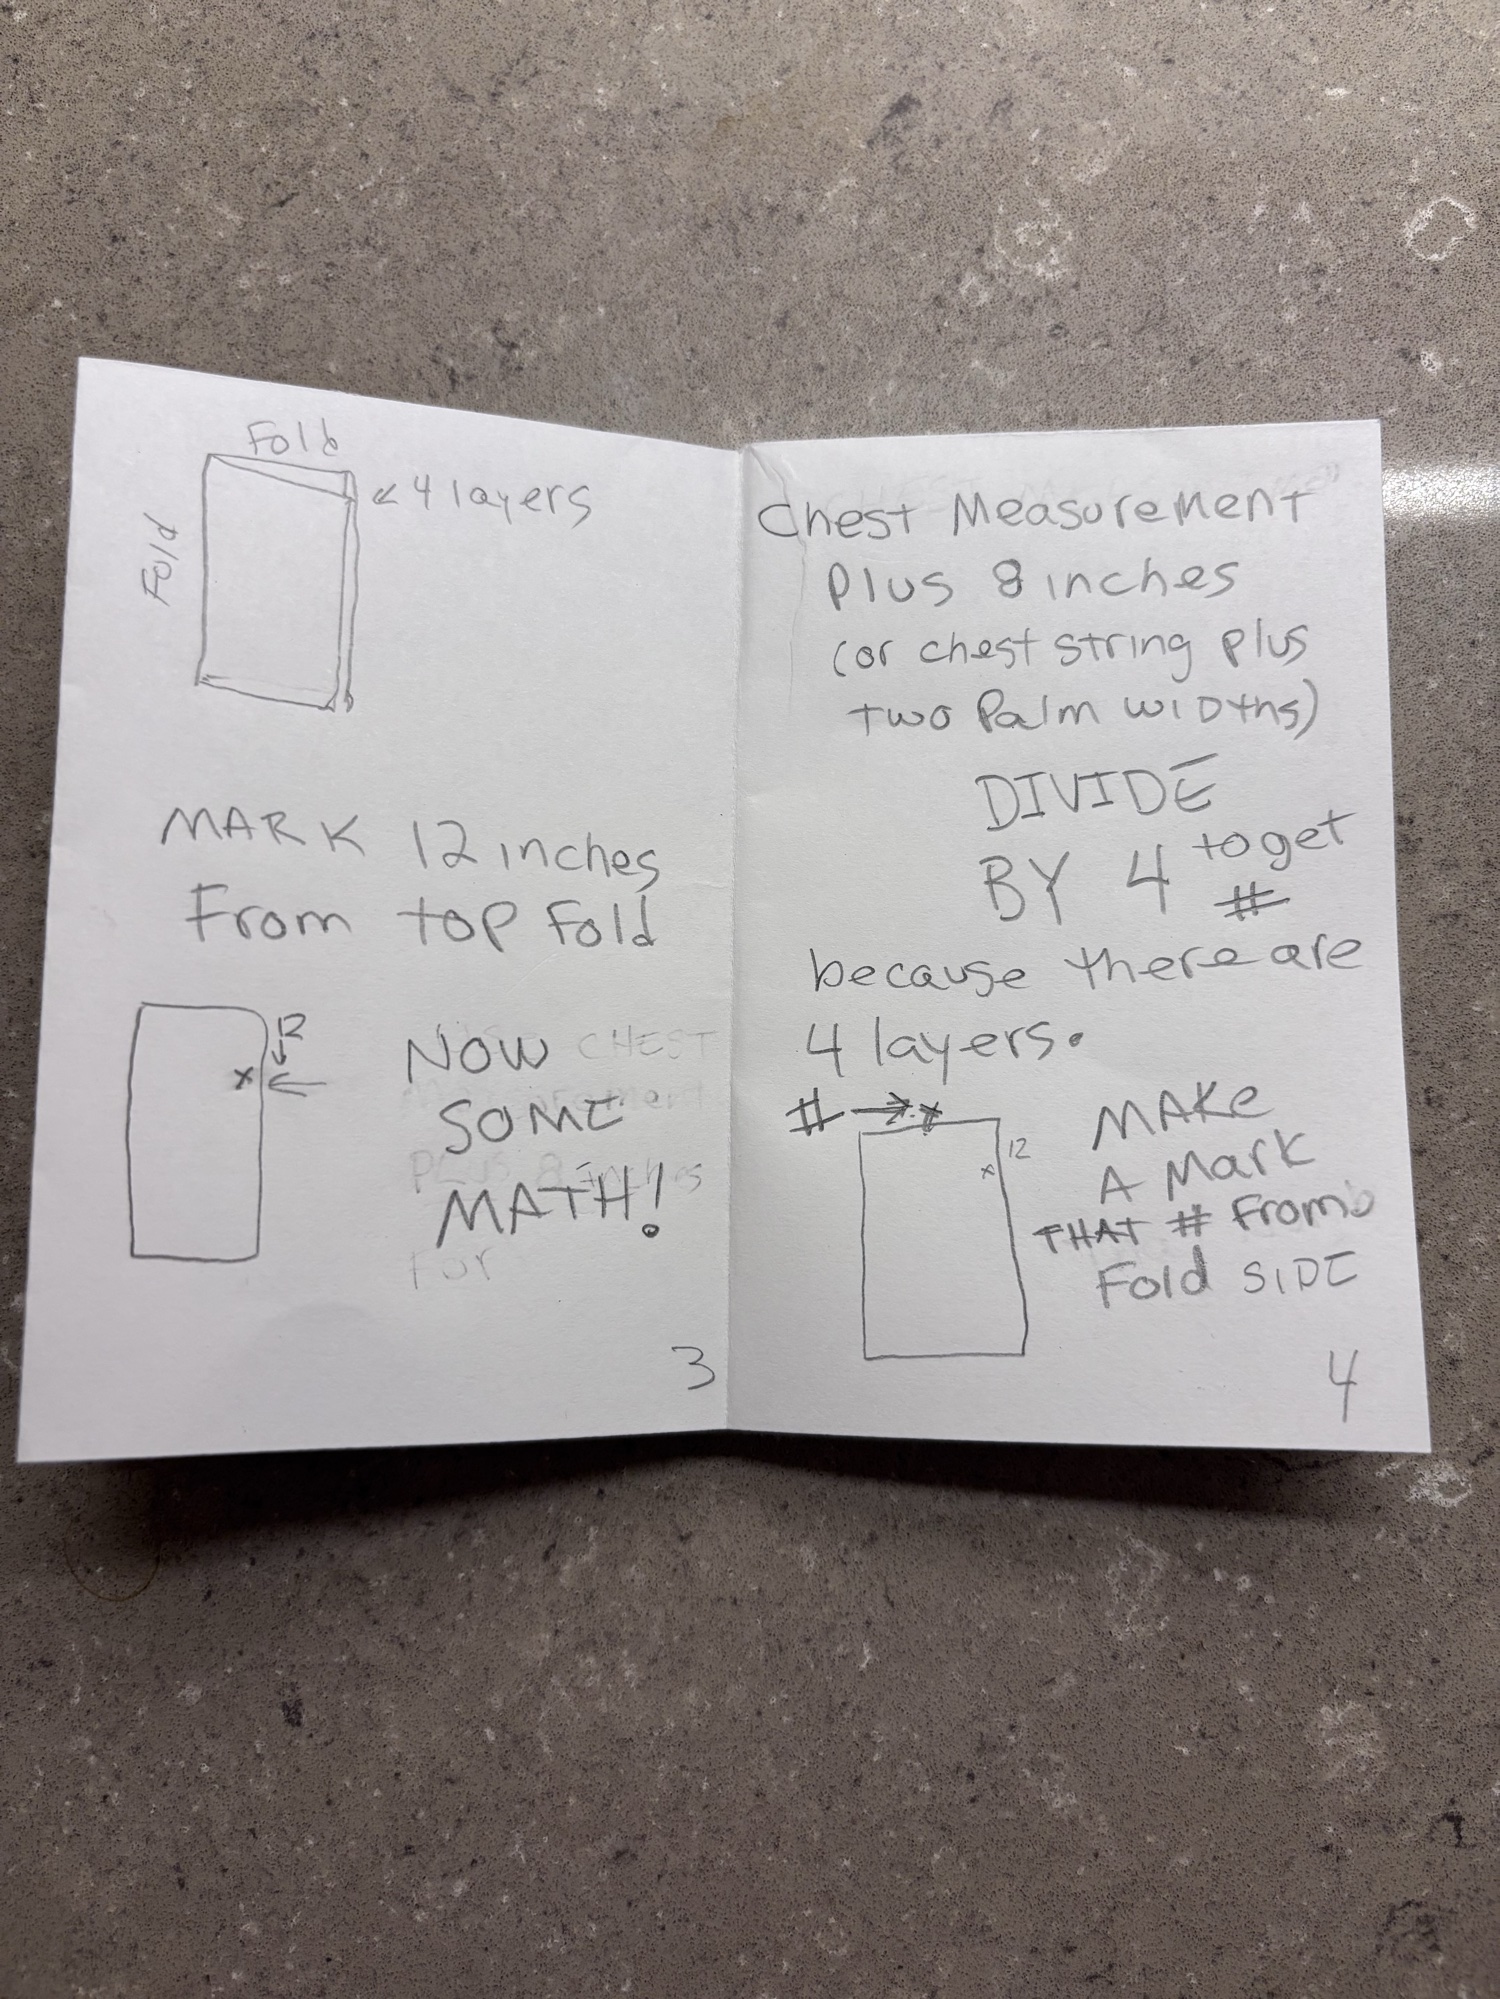 Fold
Fold
← 4 layers
MARK 12 inches
From top Fold
12
x
NOW CHEST
SOME
PLUS 8 inches
MATH!
For
3
Chest Measurement
Plus 8 inches
(or chest string plus
two Palm widths)
DIVIDE
BY 4 to get
#
because there are
4 layers.
# → x
12
x
MAKE
A Mark
THAT # From
Fold SIDE
4